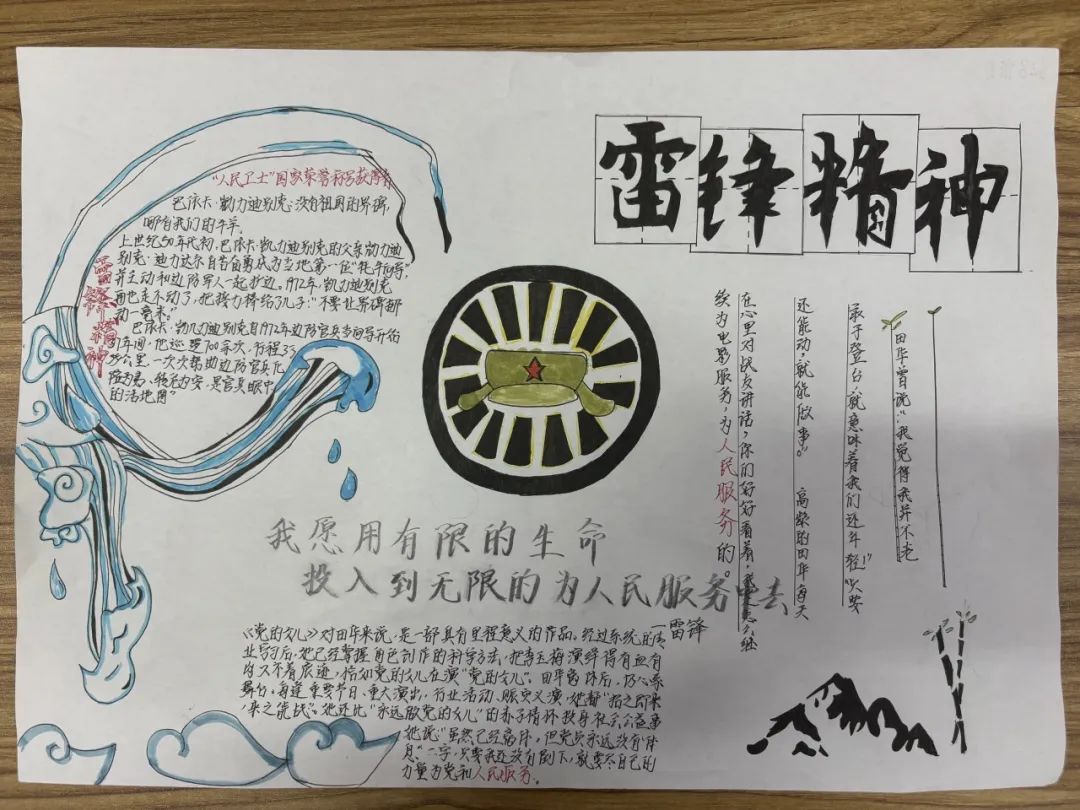 雷锋精神
"人民卫士"国家荣誉称号获得者
巴依卡·凯力迪别克:没有祖国的界碑,
哪有我们的牛羊。
上世纪50年代初,巴依卡·凯力迪别克的父亲凯力迪
别克·迪力达尔自告奋勇成为当地第一位
并主动和边防军人一起护边。1972年,凯力迪别克
再也走不动了,把接力棒给了儿子:"不要让界碑移
动一毫米"
巴依卡·凯力迪别克自1972年边防官兵当向导开始
年间,他巡逻700余次,行程3
万公里,一次次帮助边防官兵化
险为夷、转危为安,是官兵眼中
的活地图"
雷锋精神
我愿用有限的生命
投入到无限的为人民服务中去
—雷锋
田华曾说:"我觉得我并不老
敢于登台,就意味着我们还年轻!""只要
还能动,就能做事。" 高龄的田华每天
在心里对战友讲话,你们好好看着,我
续为电影服务,为人民服务的。
《党的女儿》对田华来说,是一部具有里程意义的作品。经过系统的专
业学习后,她已经掌握角色创作的科学方法,把李玉梅演绎得有血有
肉又不着痕迹,恰如党的女儿在演"党的女儿"。田华离休后,仍心系
舞台,每逢重要节日、重大演出、行业活动、赈灾义演,她都"招之即来
,来之能战"。她还以"永远做党的女儿"的赤子情怀投身社会公益事
她说"虽然已经离休,但党员永远没有'休
息'二字,只要我还没有倒下,就要尽自己的
力量为党和人民服务。